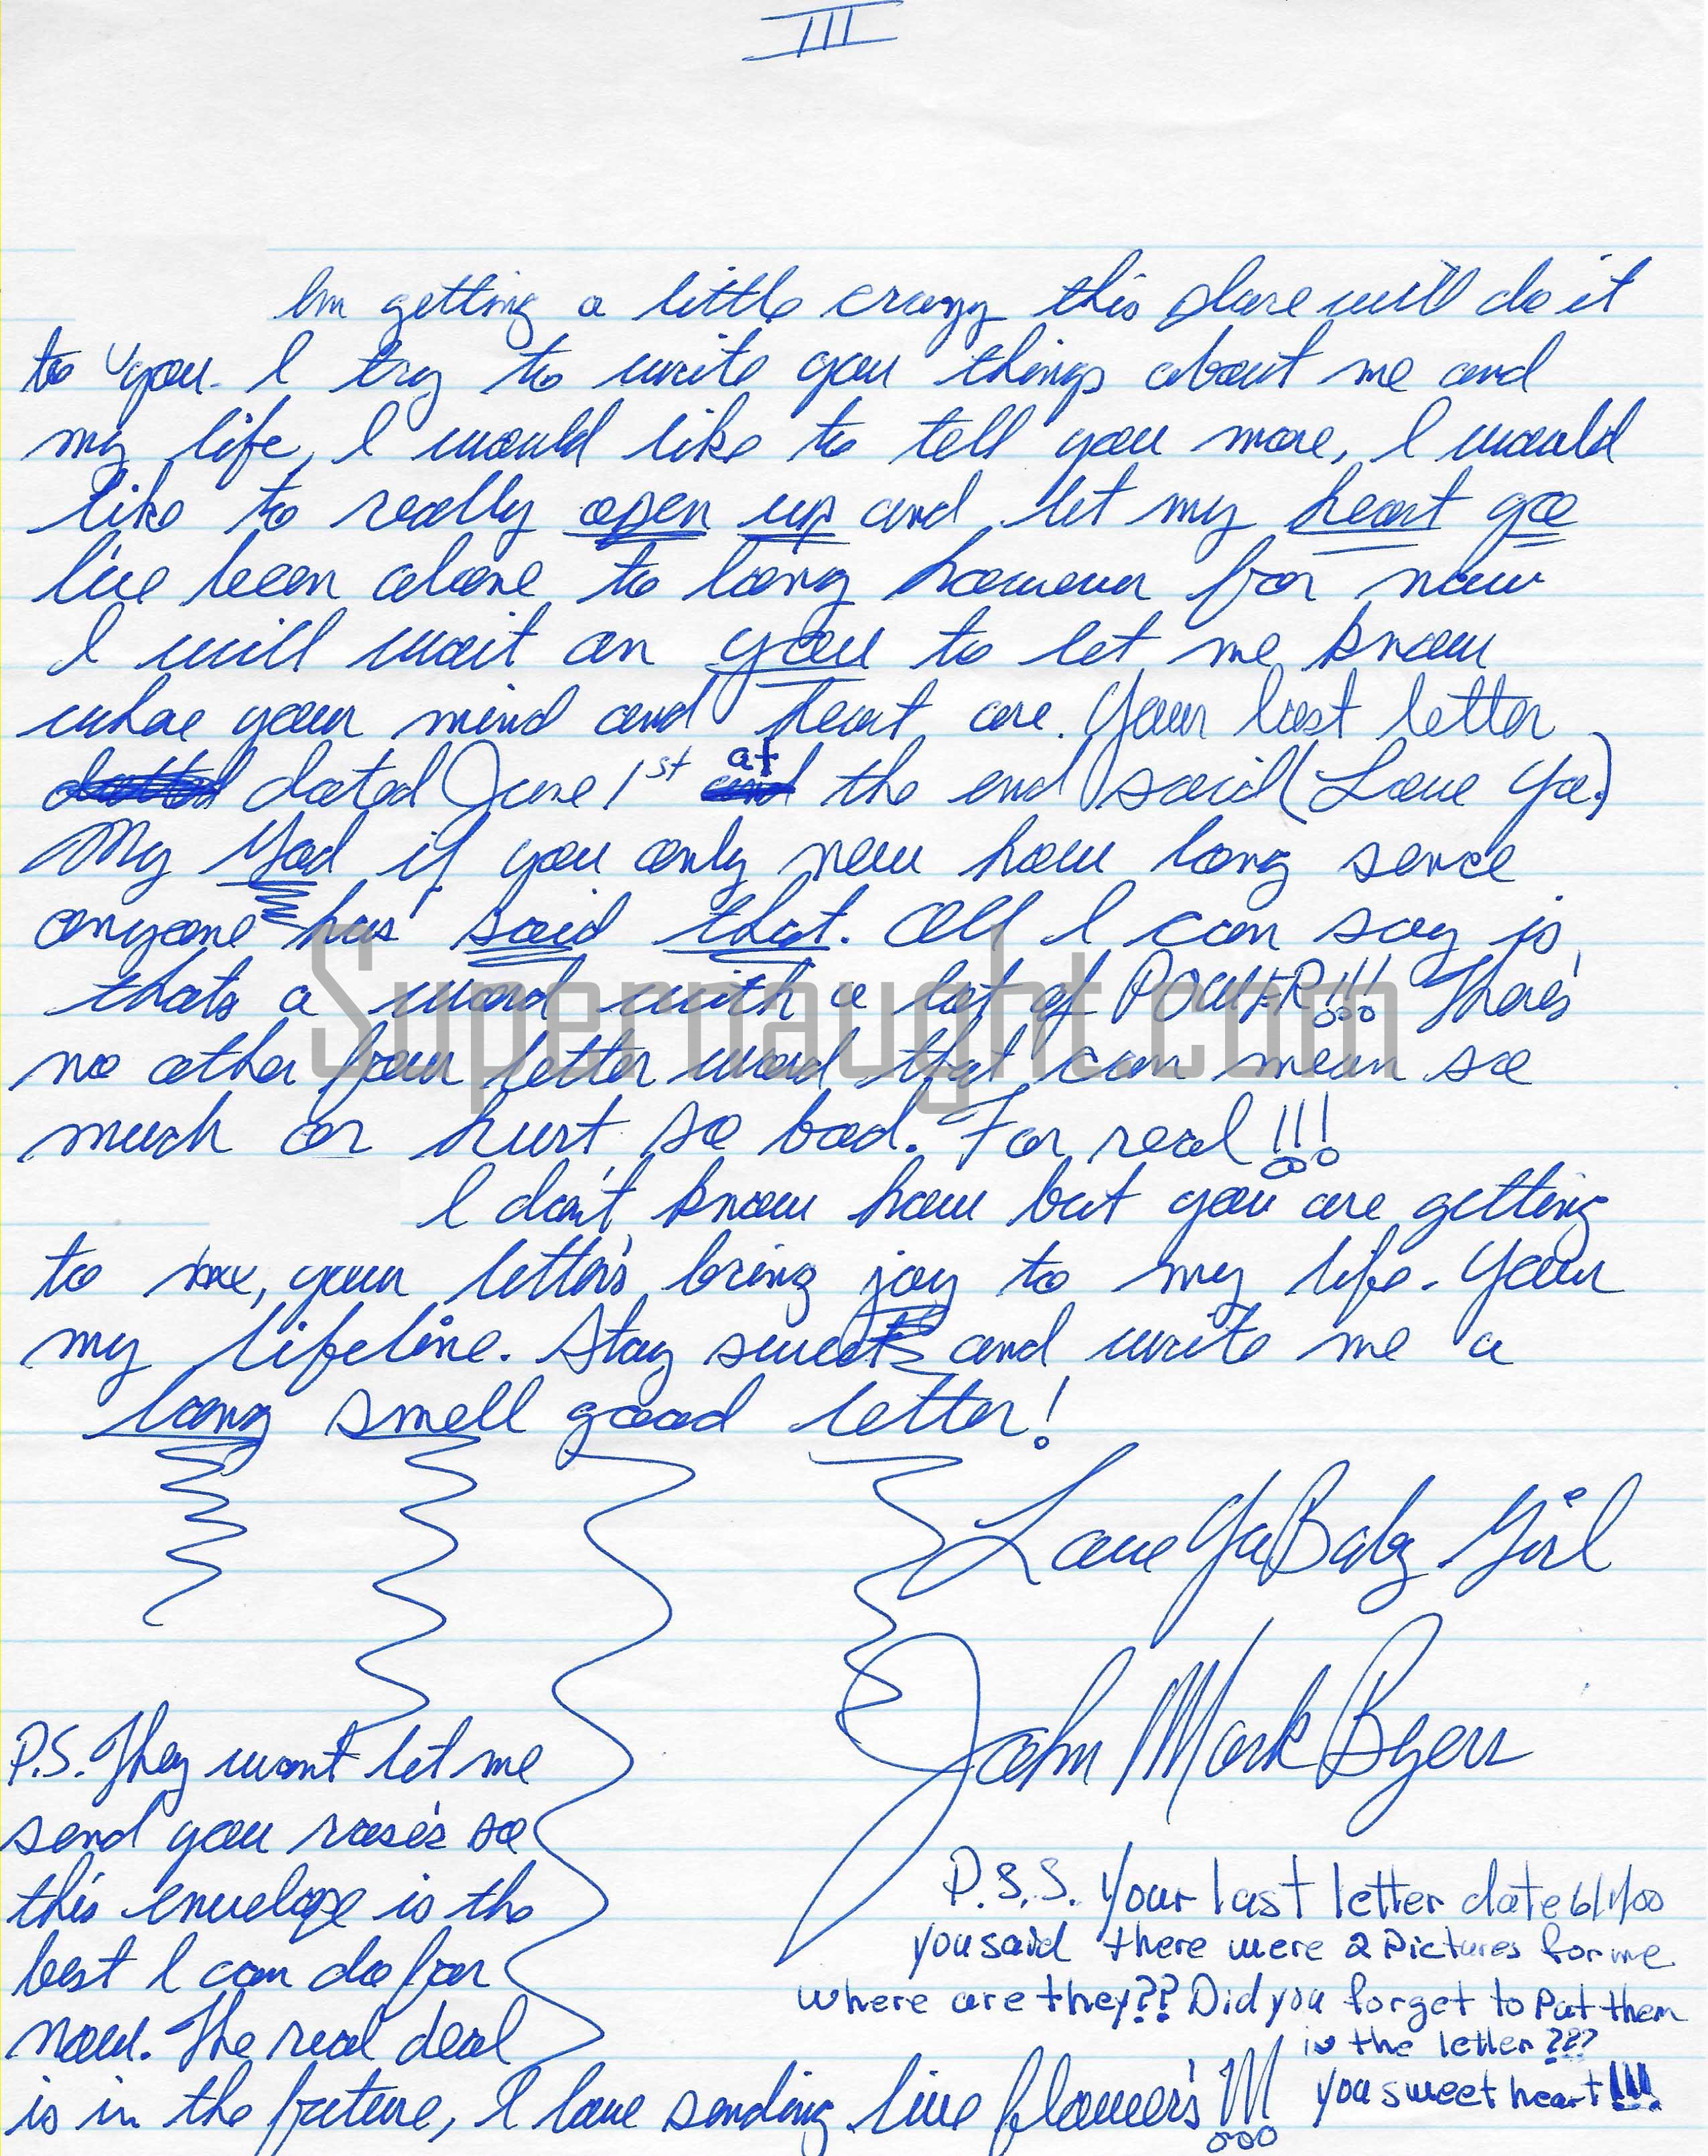 III
Im getting a little crazy this place will do it
to you. I try to write you things about me and
my life, I would like to tell you more, I would
like to really open up and let my heart go
I've been alone to long however for now
I will wait on you to let me know
whae your mind and heart are. Your last letter
dated June 1st at the end said (Love Ya.)
My God if you only new how long sence
anyone has said that. All I can say is
thats a word with a lot of POWER!!! There's
no other four letter word that can mean so
much or hurt so bad. For real!!!
I don't know how but you are getting
to me, your letter's bring joy to my life. Your
my lifeline. Stay sweet and write me a
long smell good letter!
Love Ya Baby Girl
John Mark Byers
P.S. They won't let me
send you rose's so
this envelope is the
best I can do for
now. The real deal
is in the future, I love sending live flower's!!!
P.S.S. Your last letter date 6/1/00
you said there were 2 Pictures for me
where are they?? Did you forget to Put them
in the letter???
you sweet heart!!!
Supernaught.com